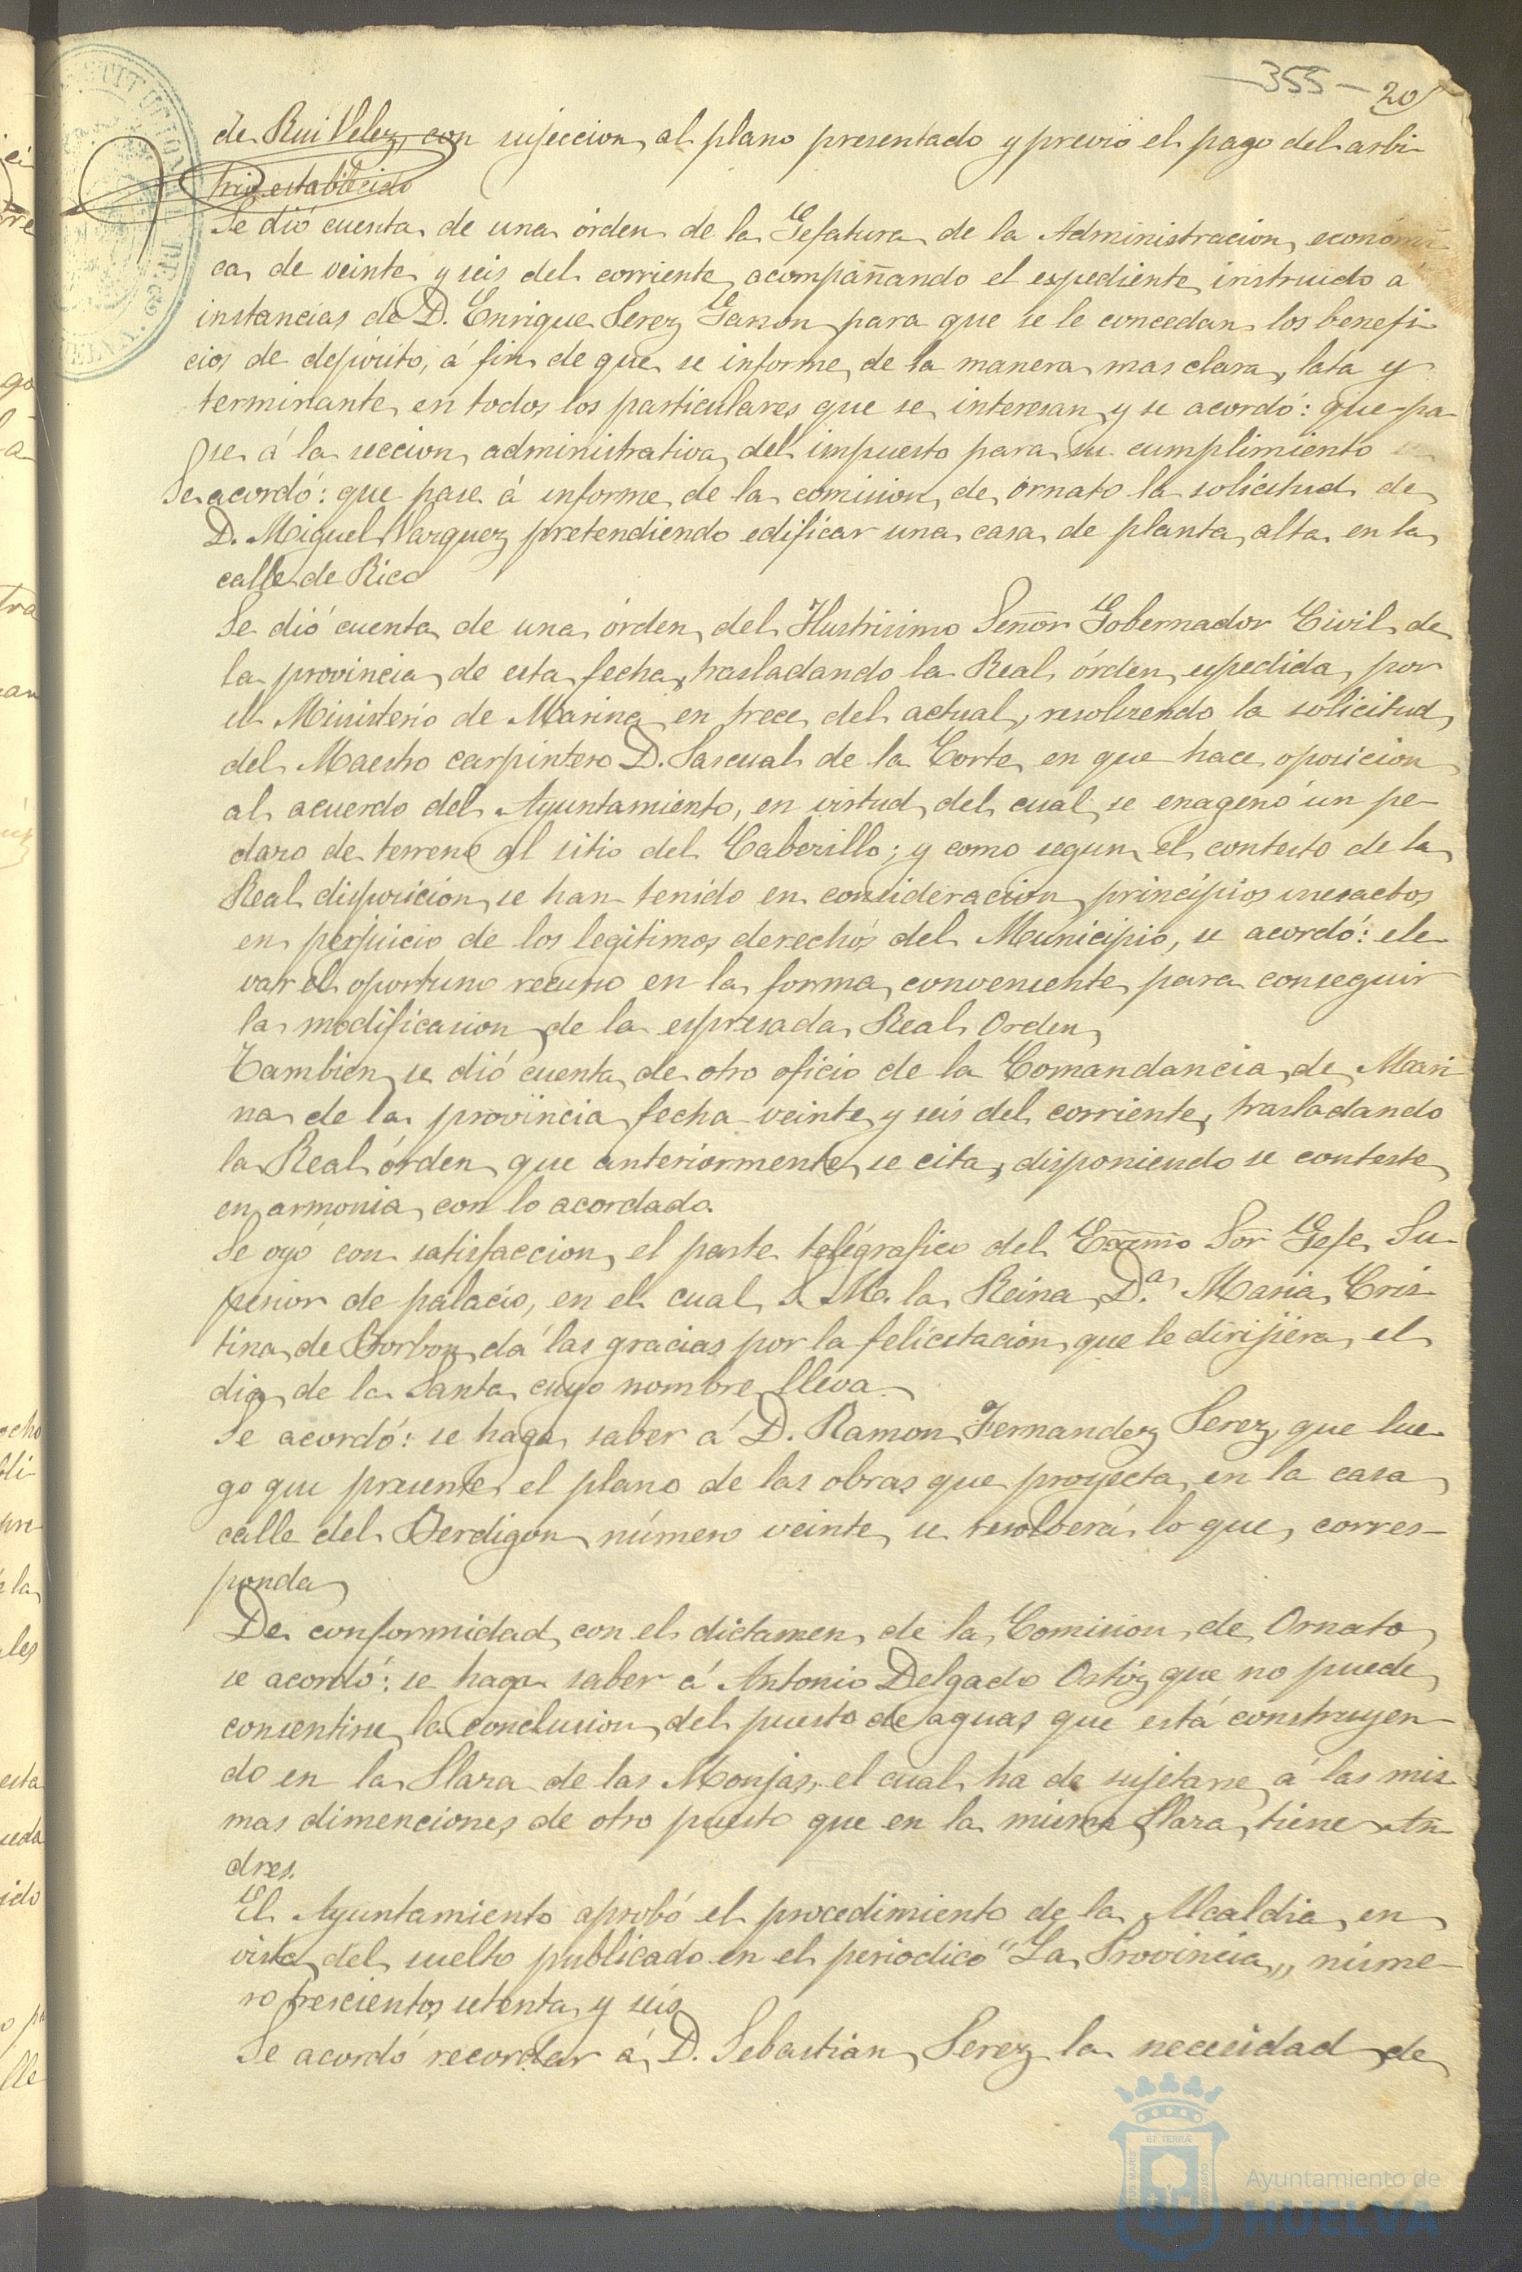 -355- 20
de Rui Velez, con sujeccion al plano presentado y previo el pago del arbi-
trio establecido
Se dió cuenta de una órden de la Gefatura de la Administracion económi-
ca de veinte y seis del corriente acompañando el espediente instruido á
instancias de D. Enrique Perez Ganzon para que se le concedan los benefi-
cios de depósito, á fin de que se informe de la manera mas clara, lata y
terminante en todos los particulares que se interesan y se acordó: que pa-
se á la seccion administrativa del impuesto para su cumplimiento
Se acordó: que pase á informe de la comision de órnato la solicitud de
D. Miguel Vazquez pretendiendo edificar una casa de planta alta en la
calle de Rico
Se dió cuenta de una órden del Ilustrisimo Señor Gobernador Civil de
la provincia de esta fecha, trasladando la Real órden espedida por
el Ministerio de Marina en trece del actual, resolviendo la solicitud
del Maestro carpintero D. Pascual de la Corte en que hace oposicion
al acuerdo del Ayuntamiento, en virtud del cual se enagenó un pe-
dazo de terreno al sitio del Cabezillo; y como segun el contesto de la
Real disposición se han tenido en consideracion principios inesactos
en perjuicio de los legitimos derechos del Municipio, se acordó: ele-
var el oportuno recurso en la forma conveniente para conseguir
la modificacion de la espresada Real Orden
Tambien se dió cuenta de otro oficio de la Comandancia de Mari-
na de la provincia fecha veinte y seis del corriente, trasladando
la Real órden que anteriormente se cita, disponiendo se conteste
en armonia con lo acordado.
Se oyó con satisfaccion el parte telégrafico del Exmo Sor Gefe Su-
perior de palacio, en el cual S. M. la Reina D.ª Maria Cris-
tina de Borbon dá las gracias por la felicitación que le dirijiera el
dia de la Santa cuyo nombre lleva.
Se acordó: se haga saber á D. Ramon Fernandez Perez, que lue-
go que presente el plano de las obras que proyecta en la casa
calle del Berdigon número veinte se resolverá lo que corres-
ponda
De conformidad con el dictamen de la Comision de Ornato
se acordó: se haga saber á Antonio Delgado Ortiz que no puede
consentirse la conclusion del puesto de aguas que está construyen-
do en la Plaza de las Monjas, el cual ha de sujetarse á las mis-
mas dimenciones de otro puesto que en la misma Plaza tiene An-
dres.
El Ayuntamiento aprobó el procedimiento de la Alcaldia en
vista del suelto publicado en el periodico "La Provincia,, núme-
ro trescientos setenta y seis
Se acordó recordar á D. Sebastián Perez la necesidad de
Ayuntamiento de
HUELVA